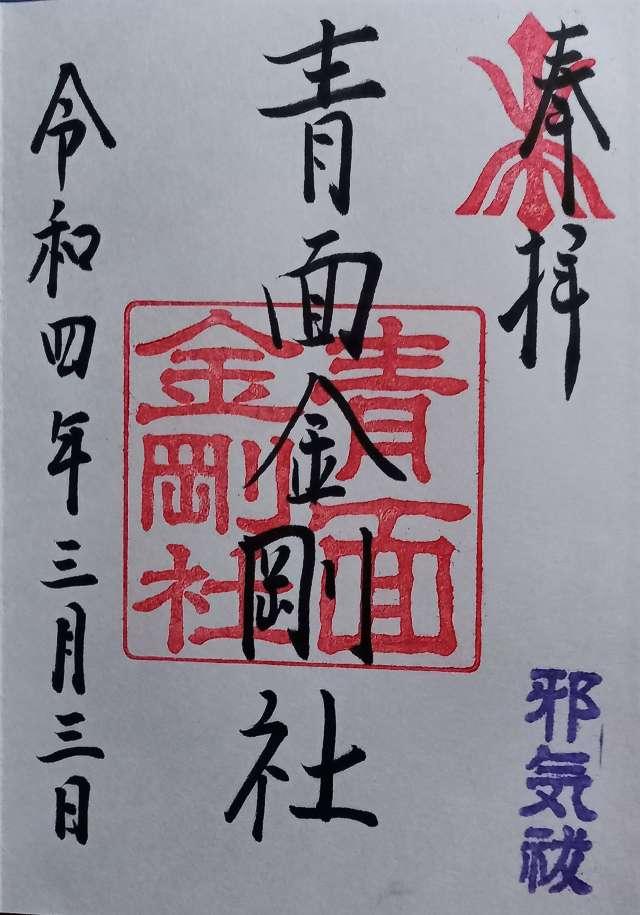 奉拝
邪気祓
青面金剛社
青面
金剛社
令和四年三月三日